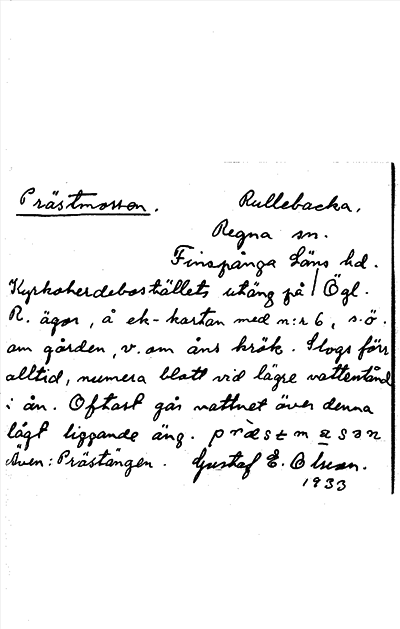 Prästmossen. Rullebacka.
Regna sn.
Finspånga Läns hd.
Kyrkoherdeboställets utäng på / Ögl.
R. ägor, å ek-kartan med n:r 6, s.ö.
om gården, v. om åns krök. Slogs förr
alltid, numera blott vid lägre vattenstånd
i ån. Oftast går vattnet över denna
lågt liggande äng. præstmasan
Även: Prästängen. Gustaf E. Olsson.
1933